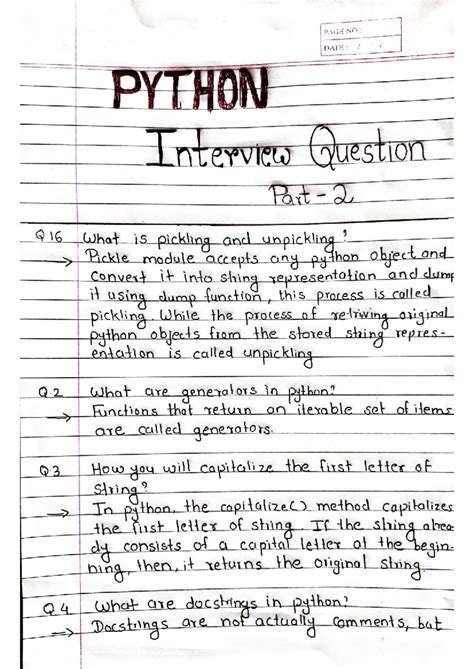 PAGE NO:
DATE: / /
PYTHON
Interview Question
Part - 2
Q 16 What is pickling and unpickling?
→ Pickle module accepts any python object and
convert it into string representation and dump
it using dump function, this process is called
pickling. While the process of retriving original
python objects from the stored string repres-
entation is called unpickling
Q.2 What are generators in python?
→ Functions that return an iterable set of items
are called generators.
Q.3 How you will capitalize the first letter of
string?
→ In python, the capitalize() method capitalizes
the first letter of string. If the string alrea-
dy consists of a capital letter at the begin-
ning, then, it returns the original string.
Q 4 What are docstrings in python?
→ Docstrings are not actually comments, but